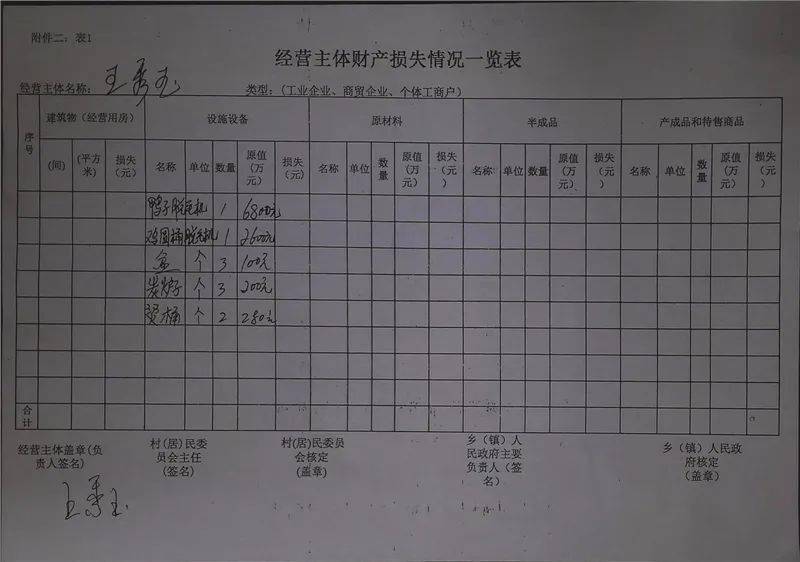 附件二：表1
经营主体财产损失情况一览表
经营主体名称： 王秀玉 类型：（工业企业、商贸企业、个体工商户）
序号 建筑物（经营用房） 设施设备 原材料 半成品 产成品和待售商品
(间) (平方米) 损失（元） 名称 单位 数量 原值（万元） 损失（元） 名称 单位 数量 原值（万元） 损失（元） 名称 单位 数量 原值（万元） 损失（元） 名称 单位 数量 原值（万元） 损失（元）
鸭子脱毛机 1 6800元
鸡圆桶脱毛机 1 2600元
盆 个 3 100元
炭炉子 个 3 200元
桶 个 2 280元
合计
经营主体盖章(负责人签名) 村(居)民委员会主任(签名) 村(居)民委员会核定(盖章) 乡（镇）人民政府主要负责人（签名） 乡（镇）人民政府核定（盖章）
王秀玉